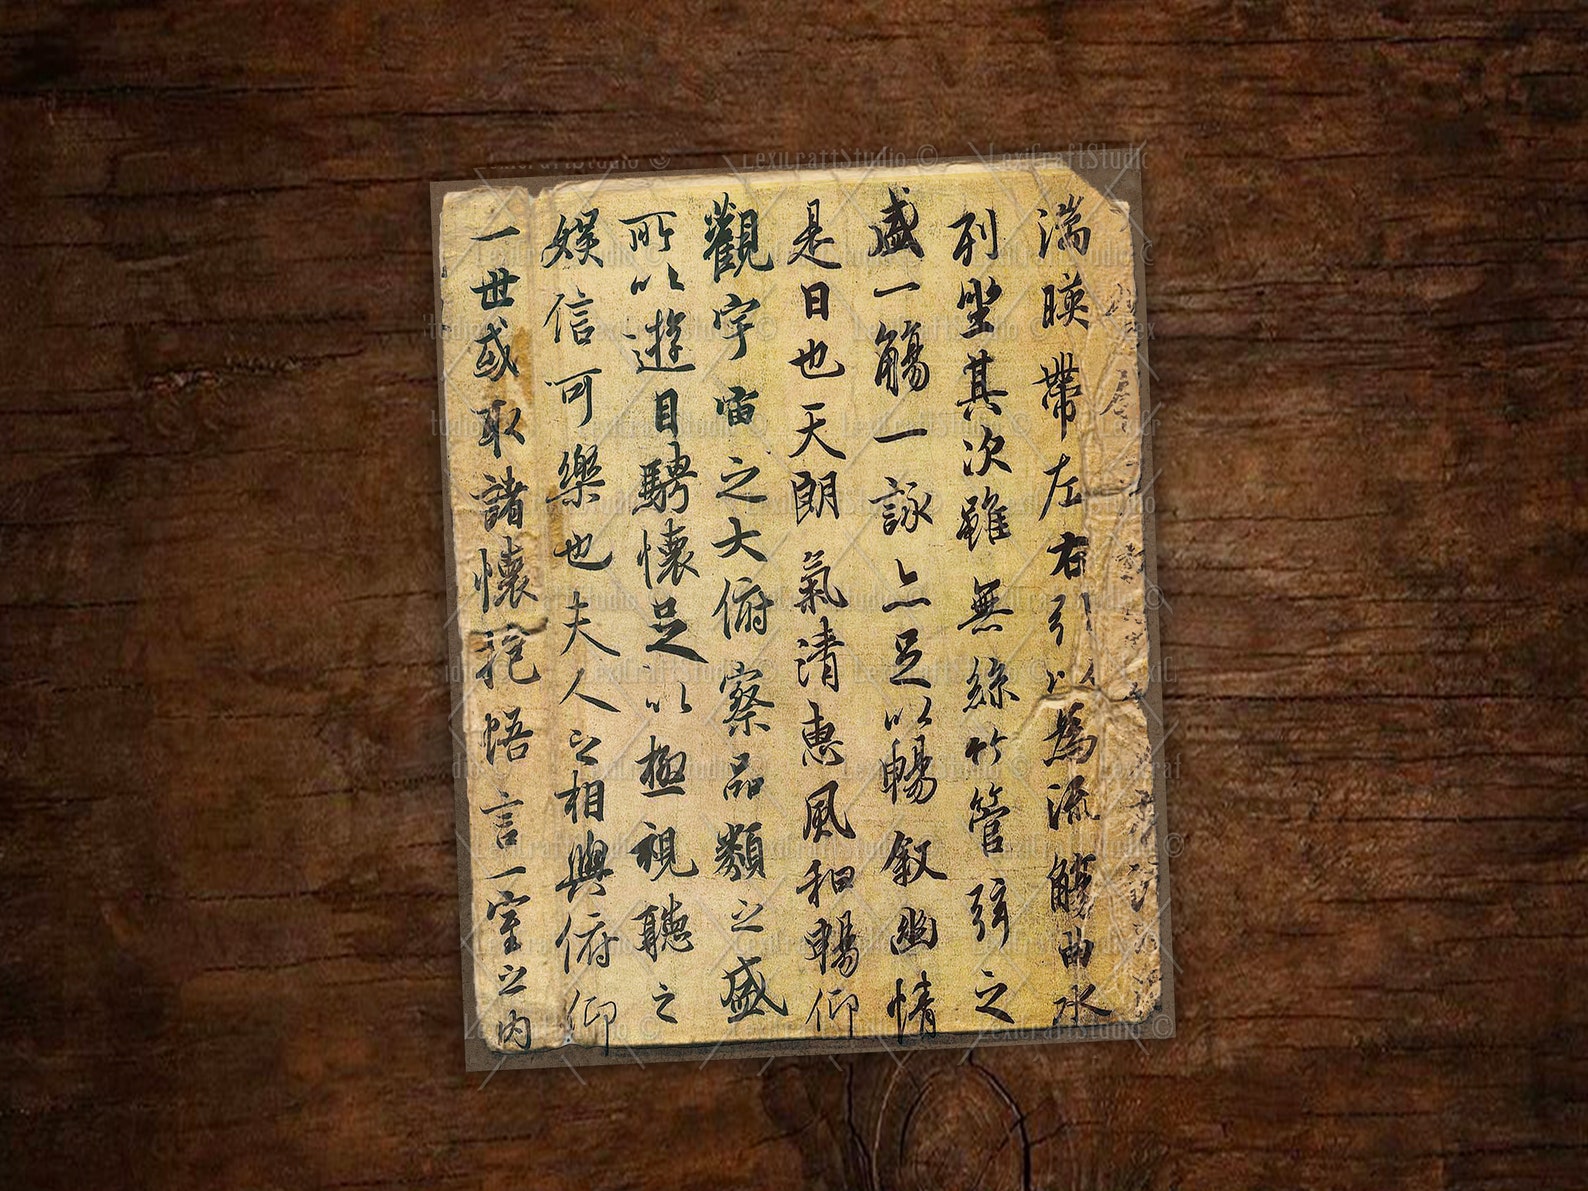 湍暎帶左右引以為流觴曲水
列坐其次雖無絲竹管弦之
盛一觴一詠亦足以暢敘幽情
是日也天朗氣清惠風和暢仰
觀宇宙之大俯察品類之盛
所以遊目騁懷足以極視聽之
娛信可樂也夫人之相與俯仰
一世或取諸懷抱悟言一室之內
LexiCraftStudio ©